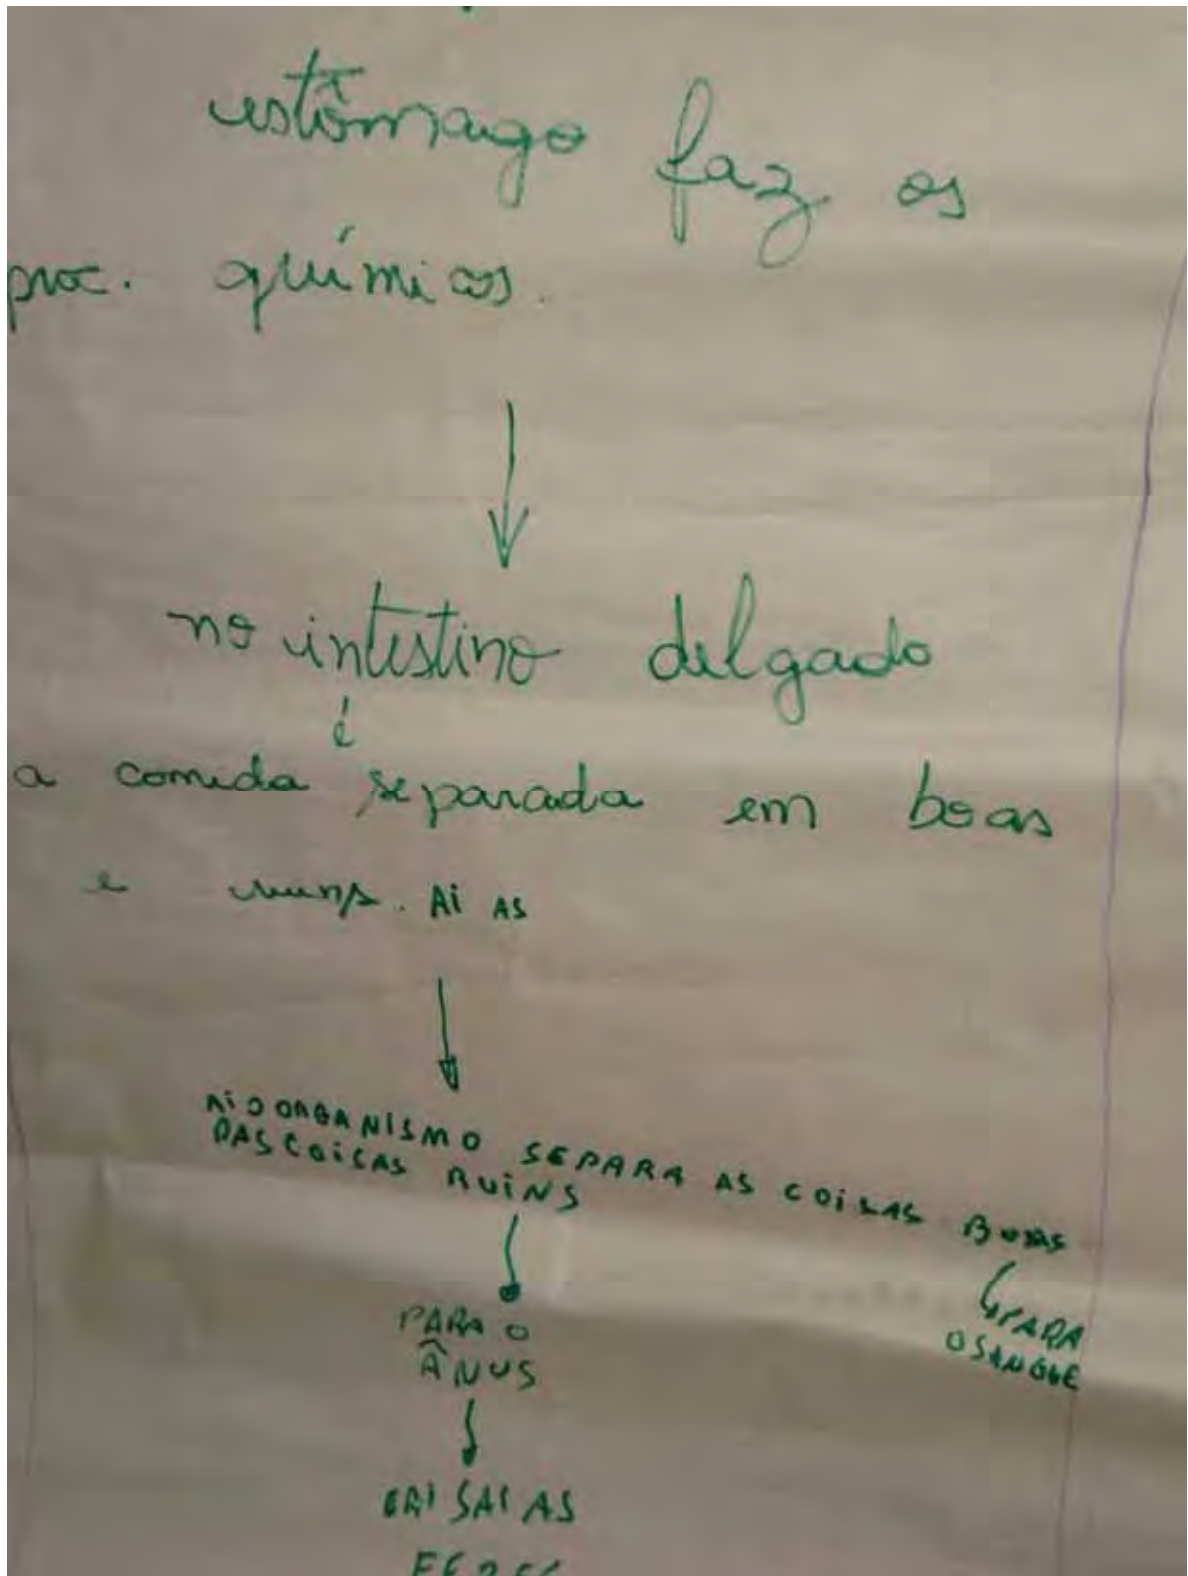 estômago faz os
proc. químicos.
no intestino delgado
é
a comida separada em boas
e ruins. AÍ AS
AÍ O ORGANISMO SEPARA AS COISAS BOAS
DAS COISAS RUINS
PARA
O SANGUE
PARA O
ÂNUS
SAI AS